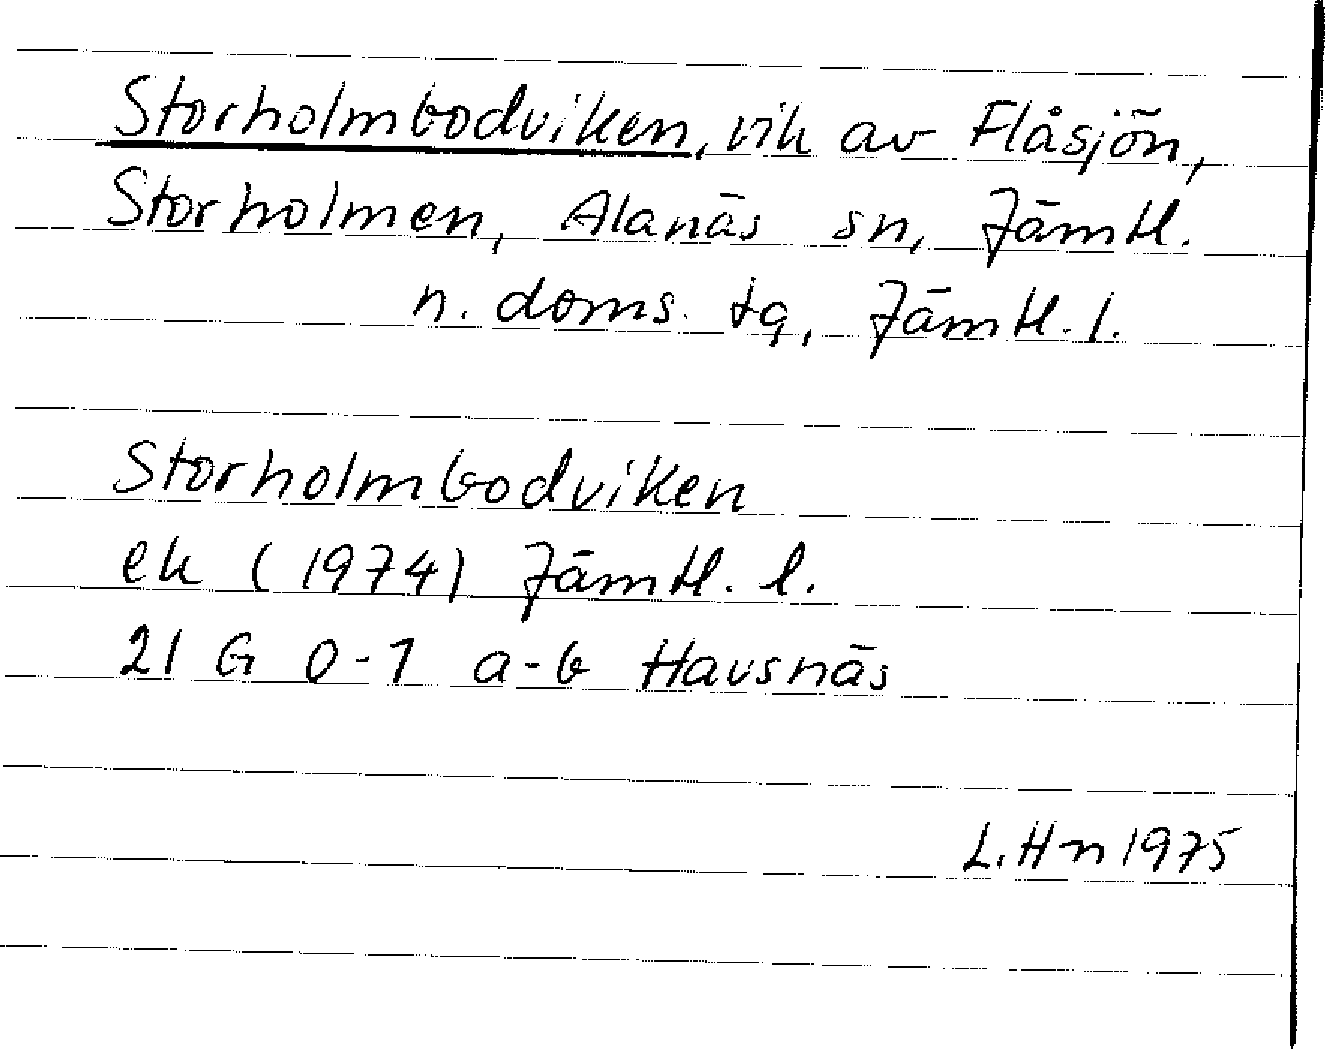 Storholmbodviken, vik av Flåsjön,
Storholmen, Alanäs sn, Jämtl.
n. doms. tg, Jämtl. l.
Storholmbodviken
ek (1974) Jämtl. l.
21 G 0-1 a-b Havsnäs
L. Hn 1975